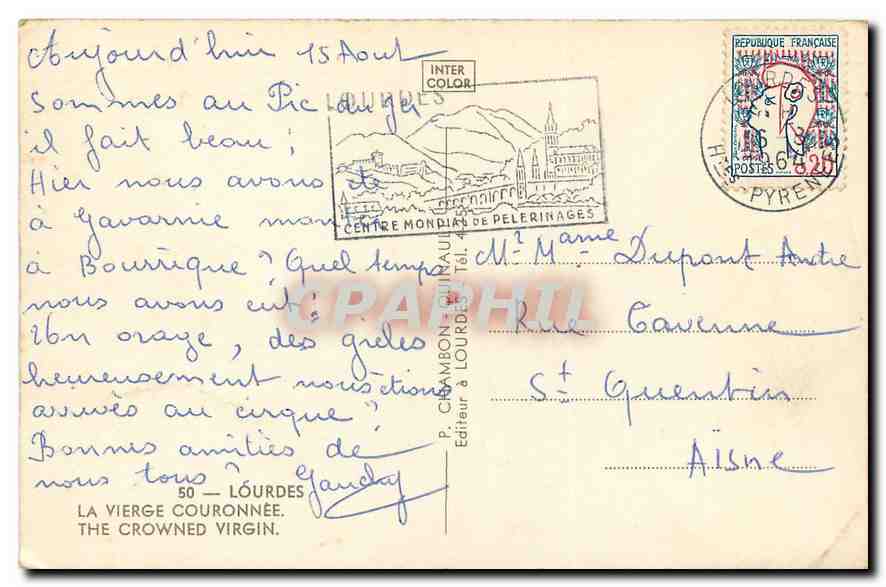 Aujourd'hui 15 Aout
Sommes au Pic du ger
il fait beau ;
Hier nous avons été
à Gavarnie montés
à Bourrique ? Quel temps
nous avons eut !
un orage, des grèles
heureusement nous étions
arrivés au cirque ?
Bonnes amitiés de
nous tous ? Gaudry
50 — LOURDES
LA VIERGE COURONNÉE.
THE CROWNED VIRGIN.
INTER
COLOR
LOURDES
CENTRE MONDIAL DE PELERINAGES
P. CHAMBON QUINAULT
Editeur à LOURDES Tél.
CPAPHIL
REPUBLIQUE FRANÇAISE
POSTES
0,20
LOURDES
HTES PYRENEES
Mr Mame Dupont Andre
Rue Cavenne
St Quentin
Aïsne